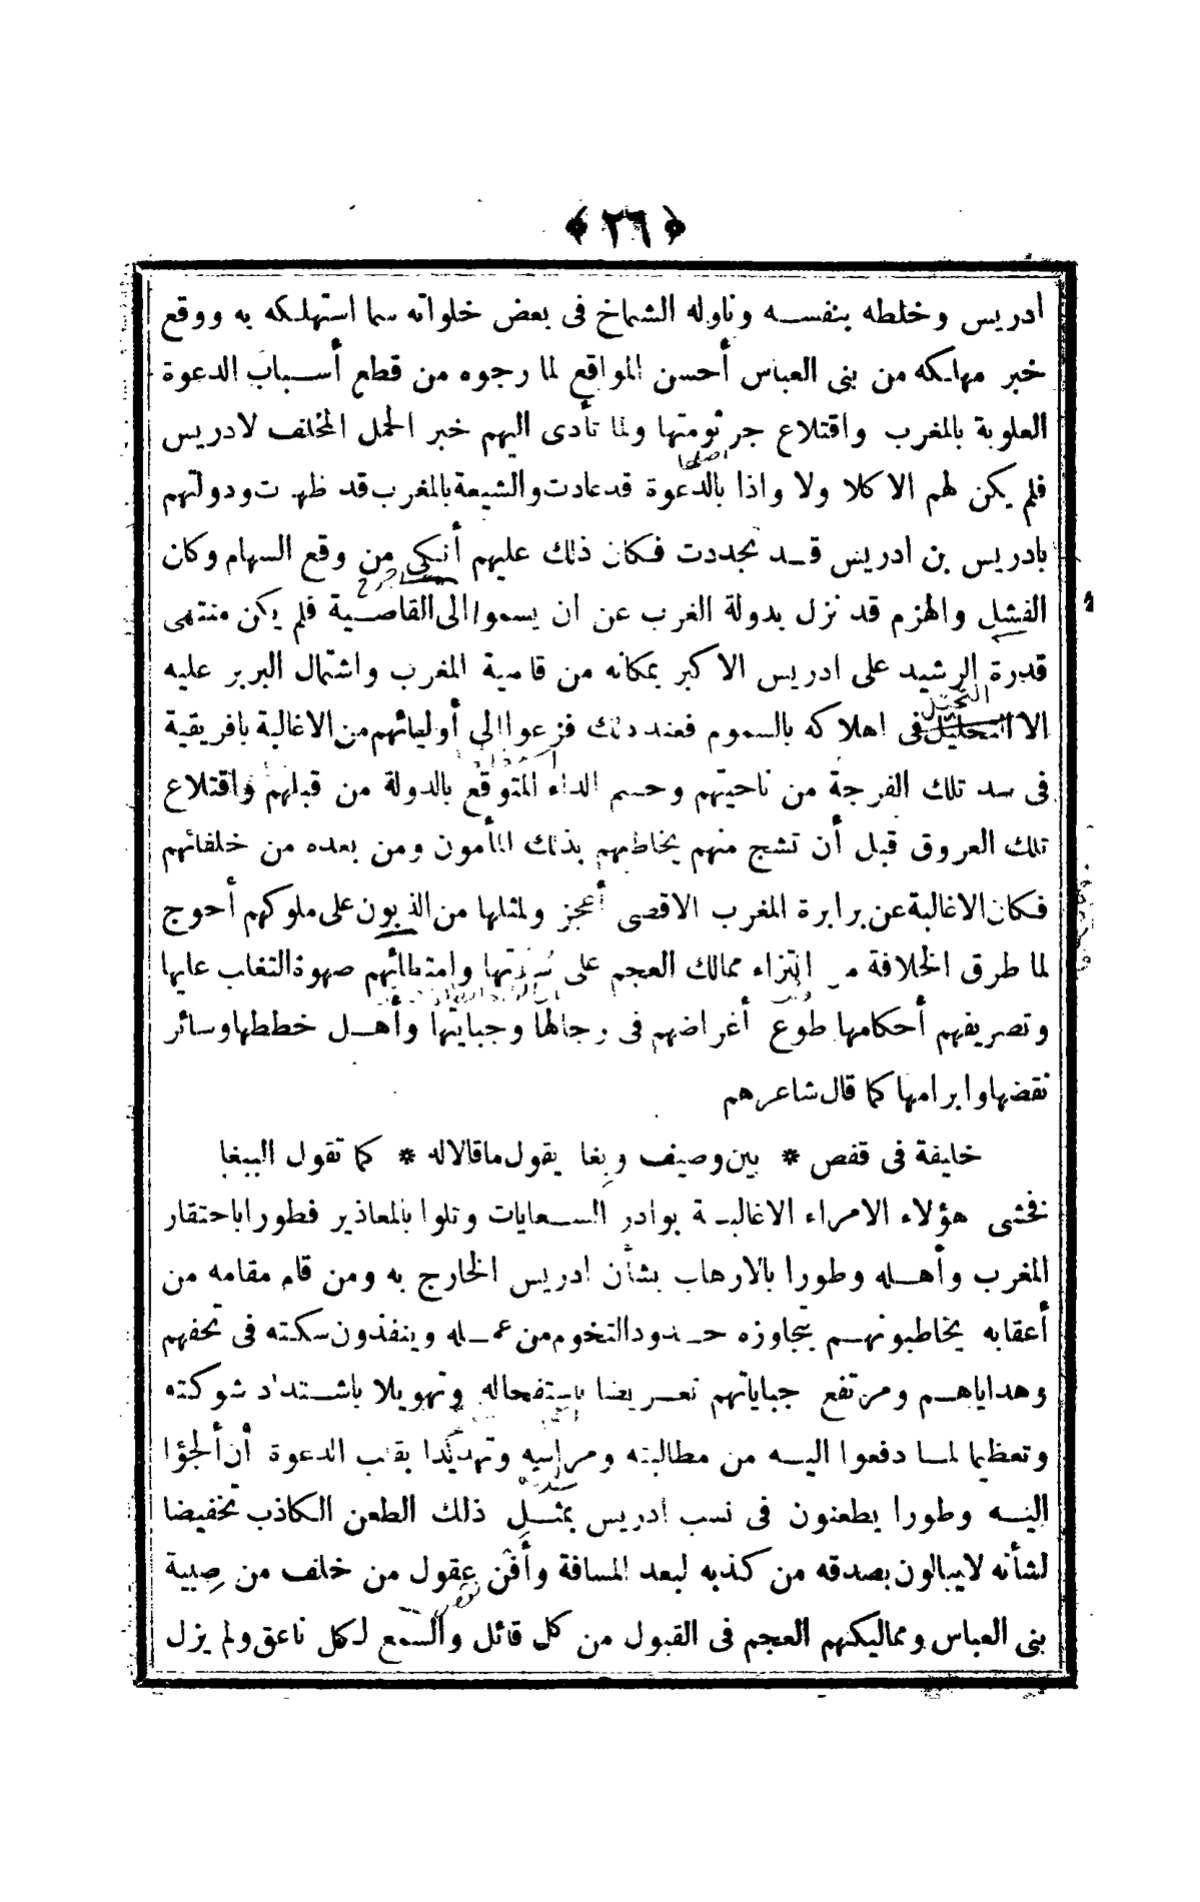 ﴿ ٢٦ ﴾
ادريس وخلطه بنفسه وناوله الشماخ فى بعض خلواته سما استهلكه به ووقع
خبر مهلكه من بنى العباس أحسن المواقع لما رجوه من قطع أسباب الدعوة
العلوية بالمغرب واقتلاع جرثومتها ولما تأدى اليهم خبر الحمل المخلف لادريس
فلم يكن لهم الا كلا ولا واذا بالدعوة قدعادت والشيعة بالمغرب قد ظهرت ودولتهم
بادريس بن ادريس قد تجددت فكان ذلك عليهم أنكى من وقع السهام وكان
الفشل والهرم قد نزل بدولة الغرب عن ان يسموا الى القاصية فلم يكن منتهى
قدرة الرشيد على ادريس الاكبر بمكانه من قاصية المغرب واشتمال البربر عليه
الا التحليل فى اهلاكه بالسموم فعند ذلك فزعوا الى أوليائهم من الاغالبة بافريقية
التحيل
فى سد تلك الفرجة من ناحيتهم وحسم الداء المتوقع بالدولة من قبلهم واقتلاع
تلك العروق قبل أن تشج منهم يخاطبهم بذلك المأمون ومن بعده من خلفائهم
فكان الاغالبة عن برابرة المغرب الاقصى أعجز ولمثلها من الذبون على ملوكهم أحوج
لما طرق الخلافة من انتزاء ممالك العجم على سُدّتها وامتطائهم صهوة التغلب عليها
وتصريفهم أحكامها طوع أغراضهم فى رجالها وجبايتها وأهل خططها وسائر
نقضها وابرامها كما قال شاعرهم
خليفة فى قفص * بين وصيف وبغا يقول ماقالاله * كما تقول الببغا
فخشى هؤلاء الامراء الاغالبة بوادر السعايات وتلوا بالمعاذير فطورا باحتقار
المغرب وأهله وطورا بالارهاب بشأن ادريس الخارج به ومن قام مقامه من
أعقابه يخاطبونهم بتجاوزه حدود التخوم من عمله وينفذون سكته فى تحفهم
وهداياهم ومرتفع جباياتهم تعريضا باستفحاله وتهويلا باشتداد شوكته
وتعظيما لما دفعوا اليه من مطالبته ومراسه وتهديدا بقلب الدعوة أن ألجؤا
اليه وطورا يطعنون فى نسب ادريس بمثل ذلك الطعن الكاذب تخفيضا
لشأنه لايبالون بصدقه من كذبه لبعد المسافة وأفن عقول من خلف من صبية
بنى العباس ومماليكهم العجم فى القبول من كل قائل والسمع لكل ناعق ولم يزل